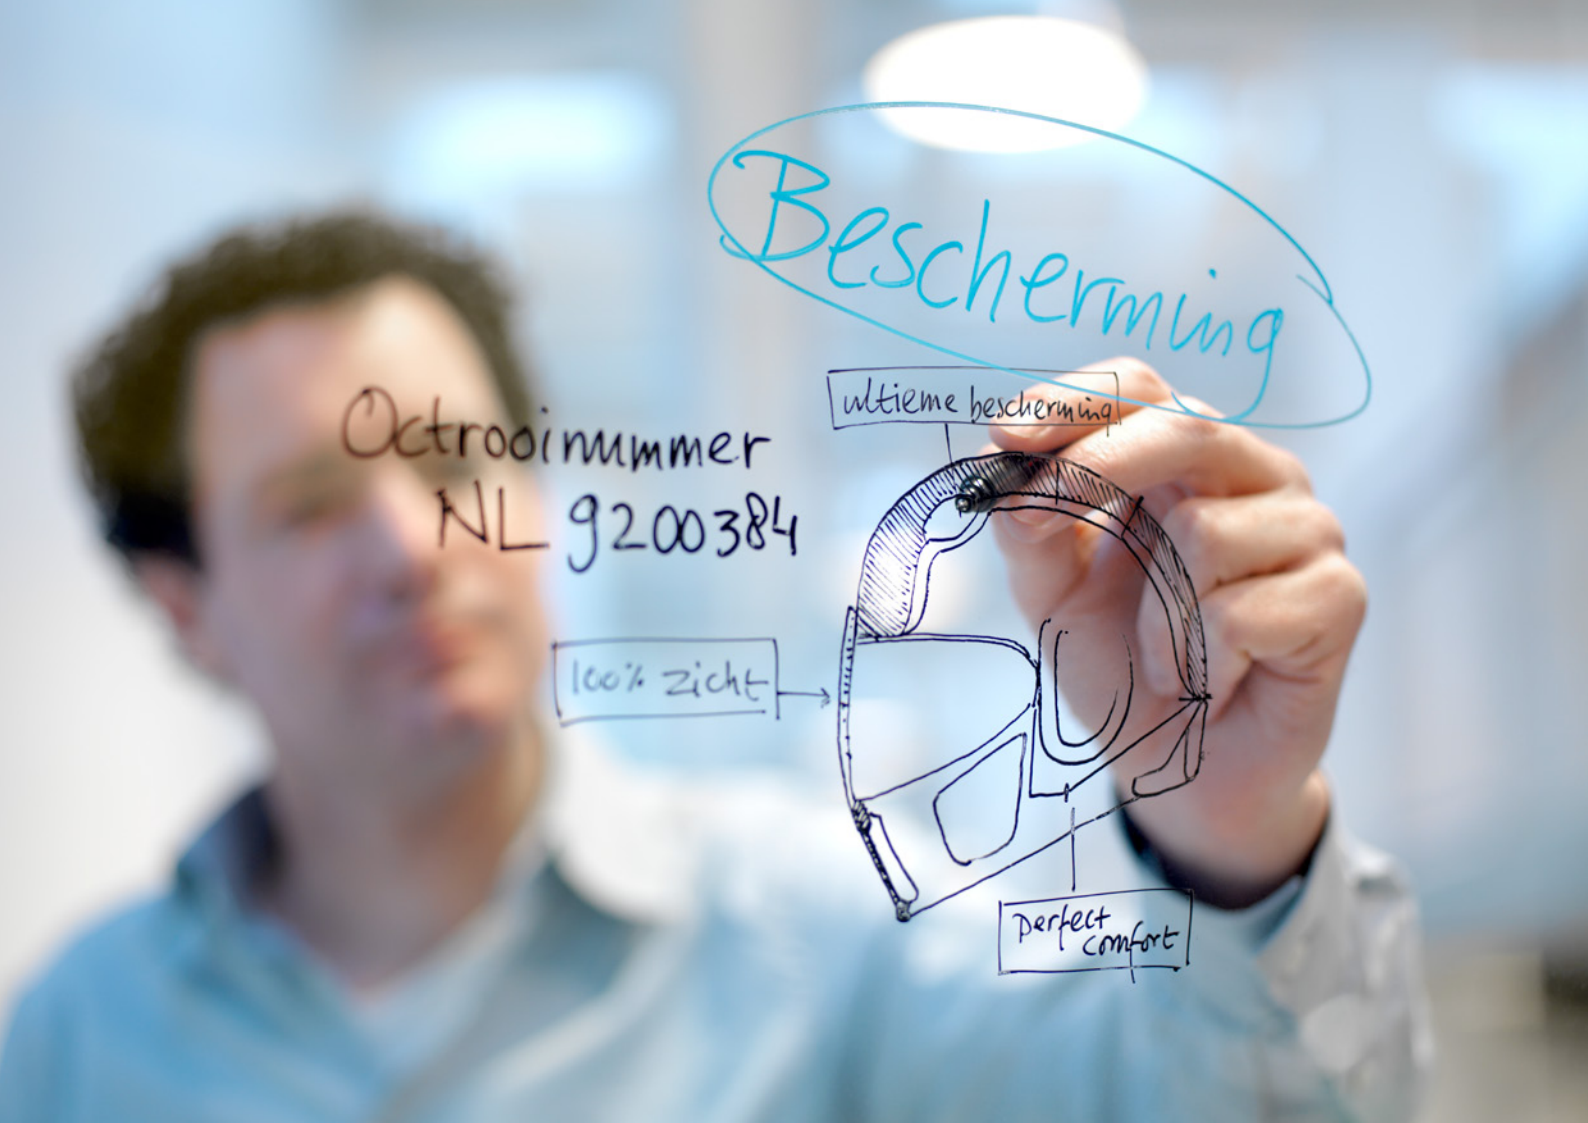 Bescherming
ultieme bescherming
Octrooinummer
NL 9200384
100% zicht
perfect
comfort